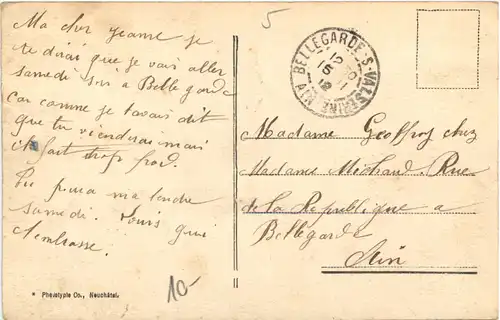 Ma cher Jeanne je
te dirai que je vais aller
samedi soir a Bellegarde
car comme je tavais dit
que tu viendrai mais
il fait trop froid.
Tu pourra matendre
samedi. Louis qui
t'embrasse.
* Phototypie Co., Neuchâtel.
10-
5
BELLEGARDE-S-VALSERINE
Madame Geoffroy chez
Madame Michaud. Rue
de La République a
Bellegarde
Ain